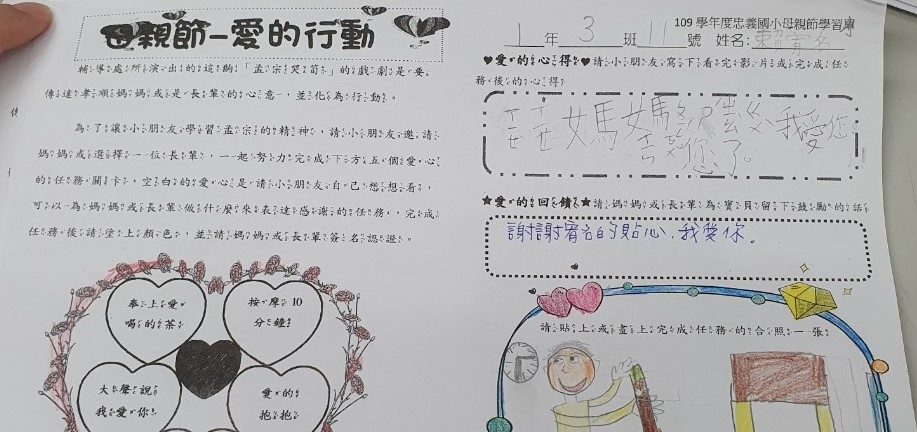 母親節-愛的行動
輔導處所演出的這齣「孟宗哭筍」的戲劇是要
傳達孝順媽媽或是長輩的心意，並化為行動。
為了讓小朋友學習孟宗的精神，請小朋友邀請
媽媽或選擇一位長輩，一起努力完成下方五個愛心
的任務關卡，空白的愛心是請小朋友自己想想看，
可以為媽媽或長輩做什麼來表達感謝的任務，完成
任務後請塗上顏色，並請媽媽或長輩簽名認證。
奉上愛心
喝的茶
按摩10
分鐘
大聲說
我愛你
愛的
抱抱
109 學年度忠義國小母親節學習單
1 年 3 班 11 號 姓名:
♥愛的心得♥請小朋友寫下看完影片或完成任
務後的心得
媽媽 我愛您
您了。
★愛的回饋★請媽媽或長輩為寶貝留下鼓勵的話
謝謝宥名的貼心，我愛你。
請貼上或畫上完成任務的合照一張